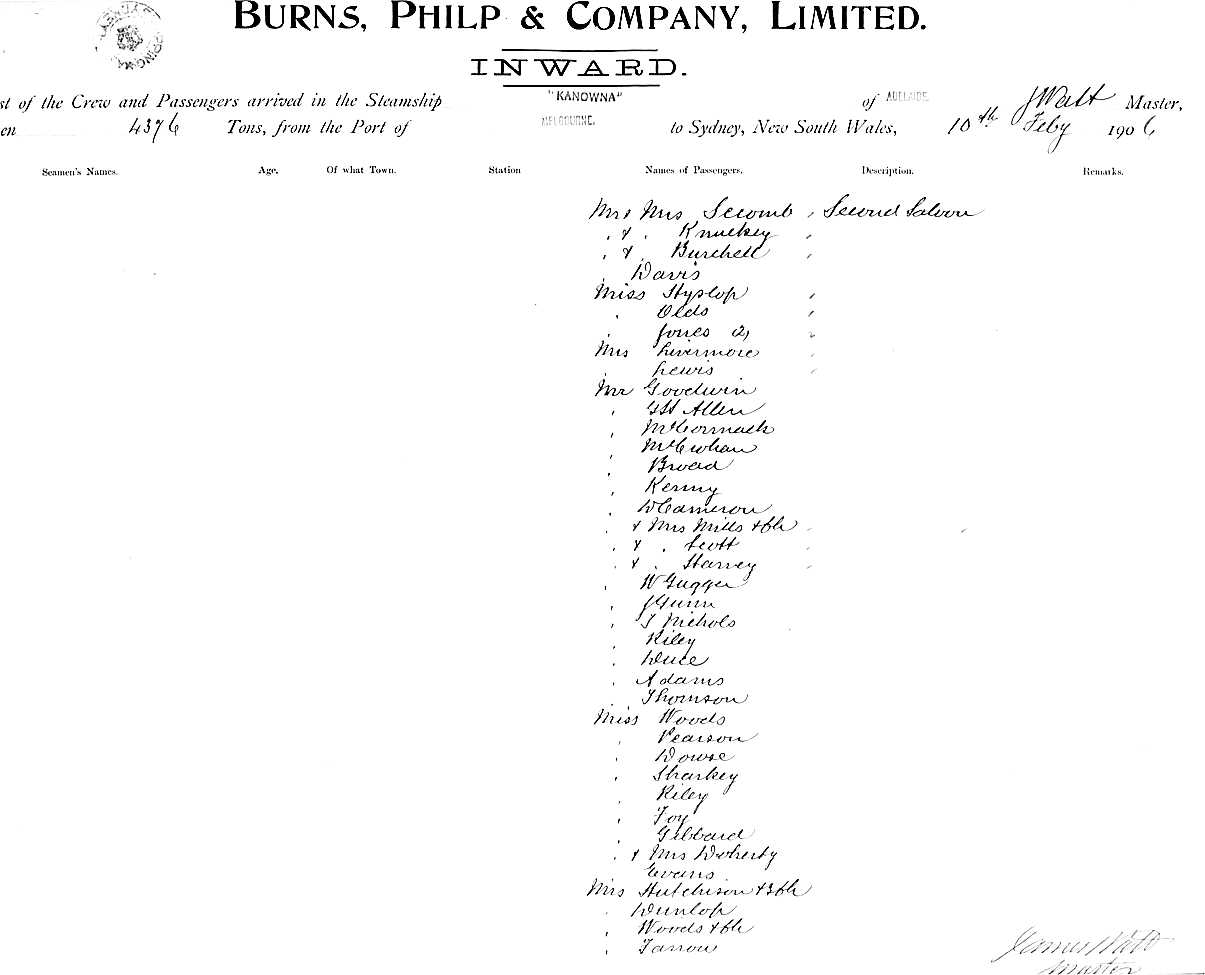 BURNS, PHILP & COMPANY, LIMITED.
INWARD.
st of the Crew and Passengers arrived in the Steamship "KANOWNA" of ADELAIDE. J Watt Master,
en 4376 Tons, from the Port of MELBOURNE. to Sydney, New South Wales, 10th Feby 1906
Seamen's Names. Age. Of what Town. Station Names of Passengers. Description. Remarks.
Mr & Mrs Secomb , Second Saloon
, & , Knuckey ,
, & , Burchell ,
, Davis
Miss Hyslop ,
, Olds ,
, Jones (2) ,
Mrs Livermore ,
, Lewis ,
Mr Goodwin
, G H Allen
, McCormack
, McEwhan
, Broad
, Kenny
, W Cameron
, & Mrs Mills & ch ,
, & , Scott ,
, & , Harvey ,
, W Gugger
, J Gunn
, T Nichols
, Riley
, Duce
, Adams
, Thomson
Miss Woods
, Pearson
, Dowse
, Sharkey
, Riley
, Foy
, Gibbard
, & Mrs Doherty
Evans
Mrs Hutchison & 3 ch
, Dunlop
, Woods & ch
, Farrow
James Watt
Master